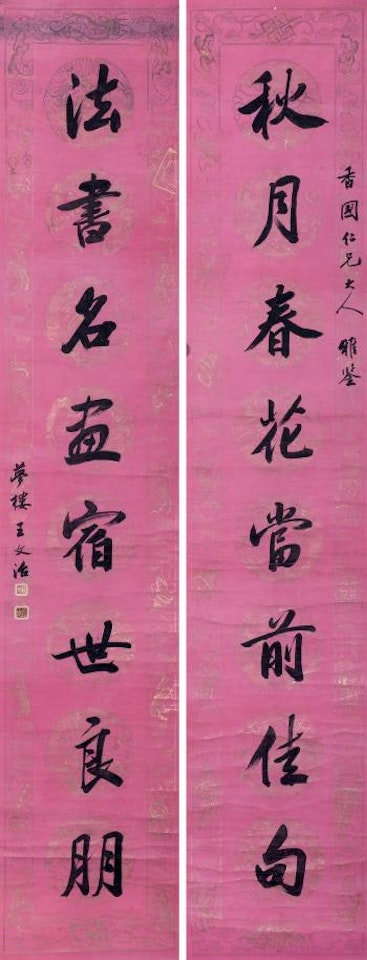 香國仁兄大人 雅鉴
秋月春花當前佳句
法書名畫宿世良朋
夢樓王文治